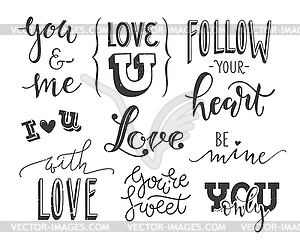 you
&
me
LOVE
U
FOLLOW
YOUR
heart
I ♥ U
Love
BE
mine
with
LOVE
You're
Sweet
YOU
only